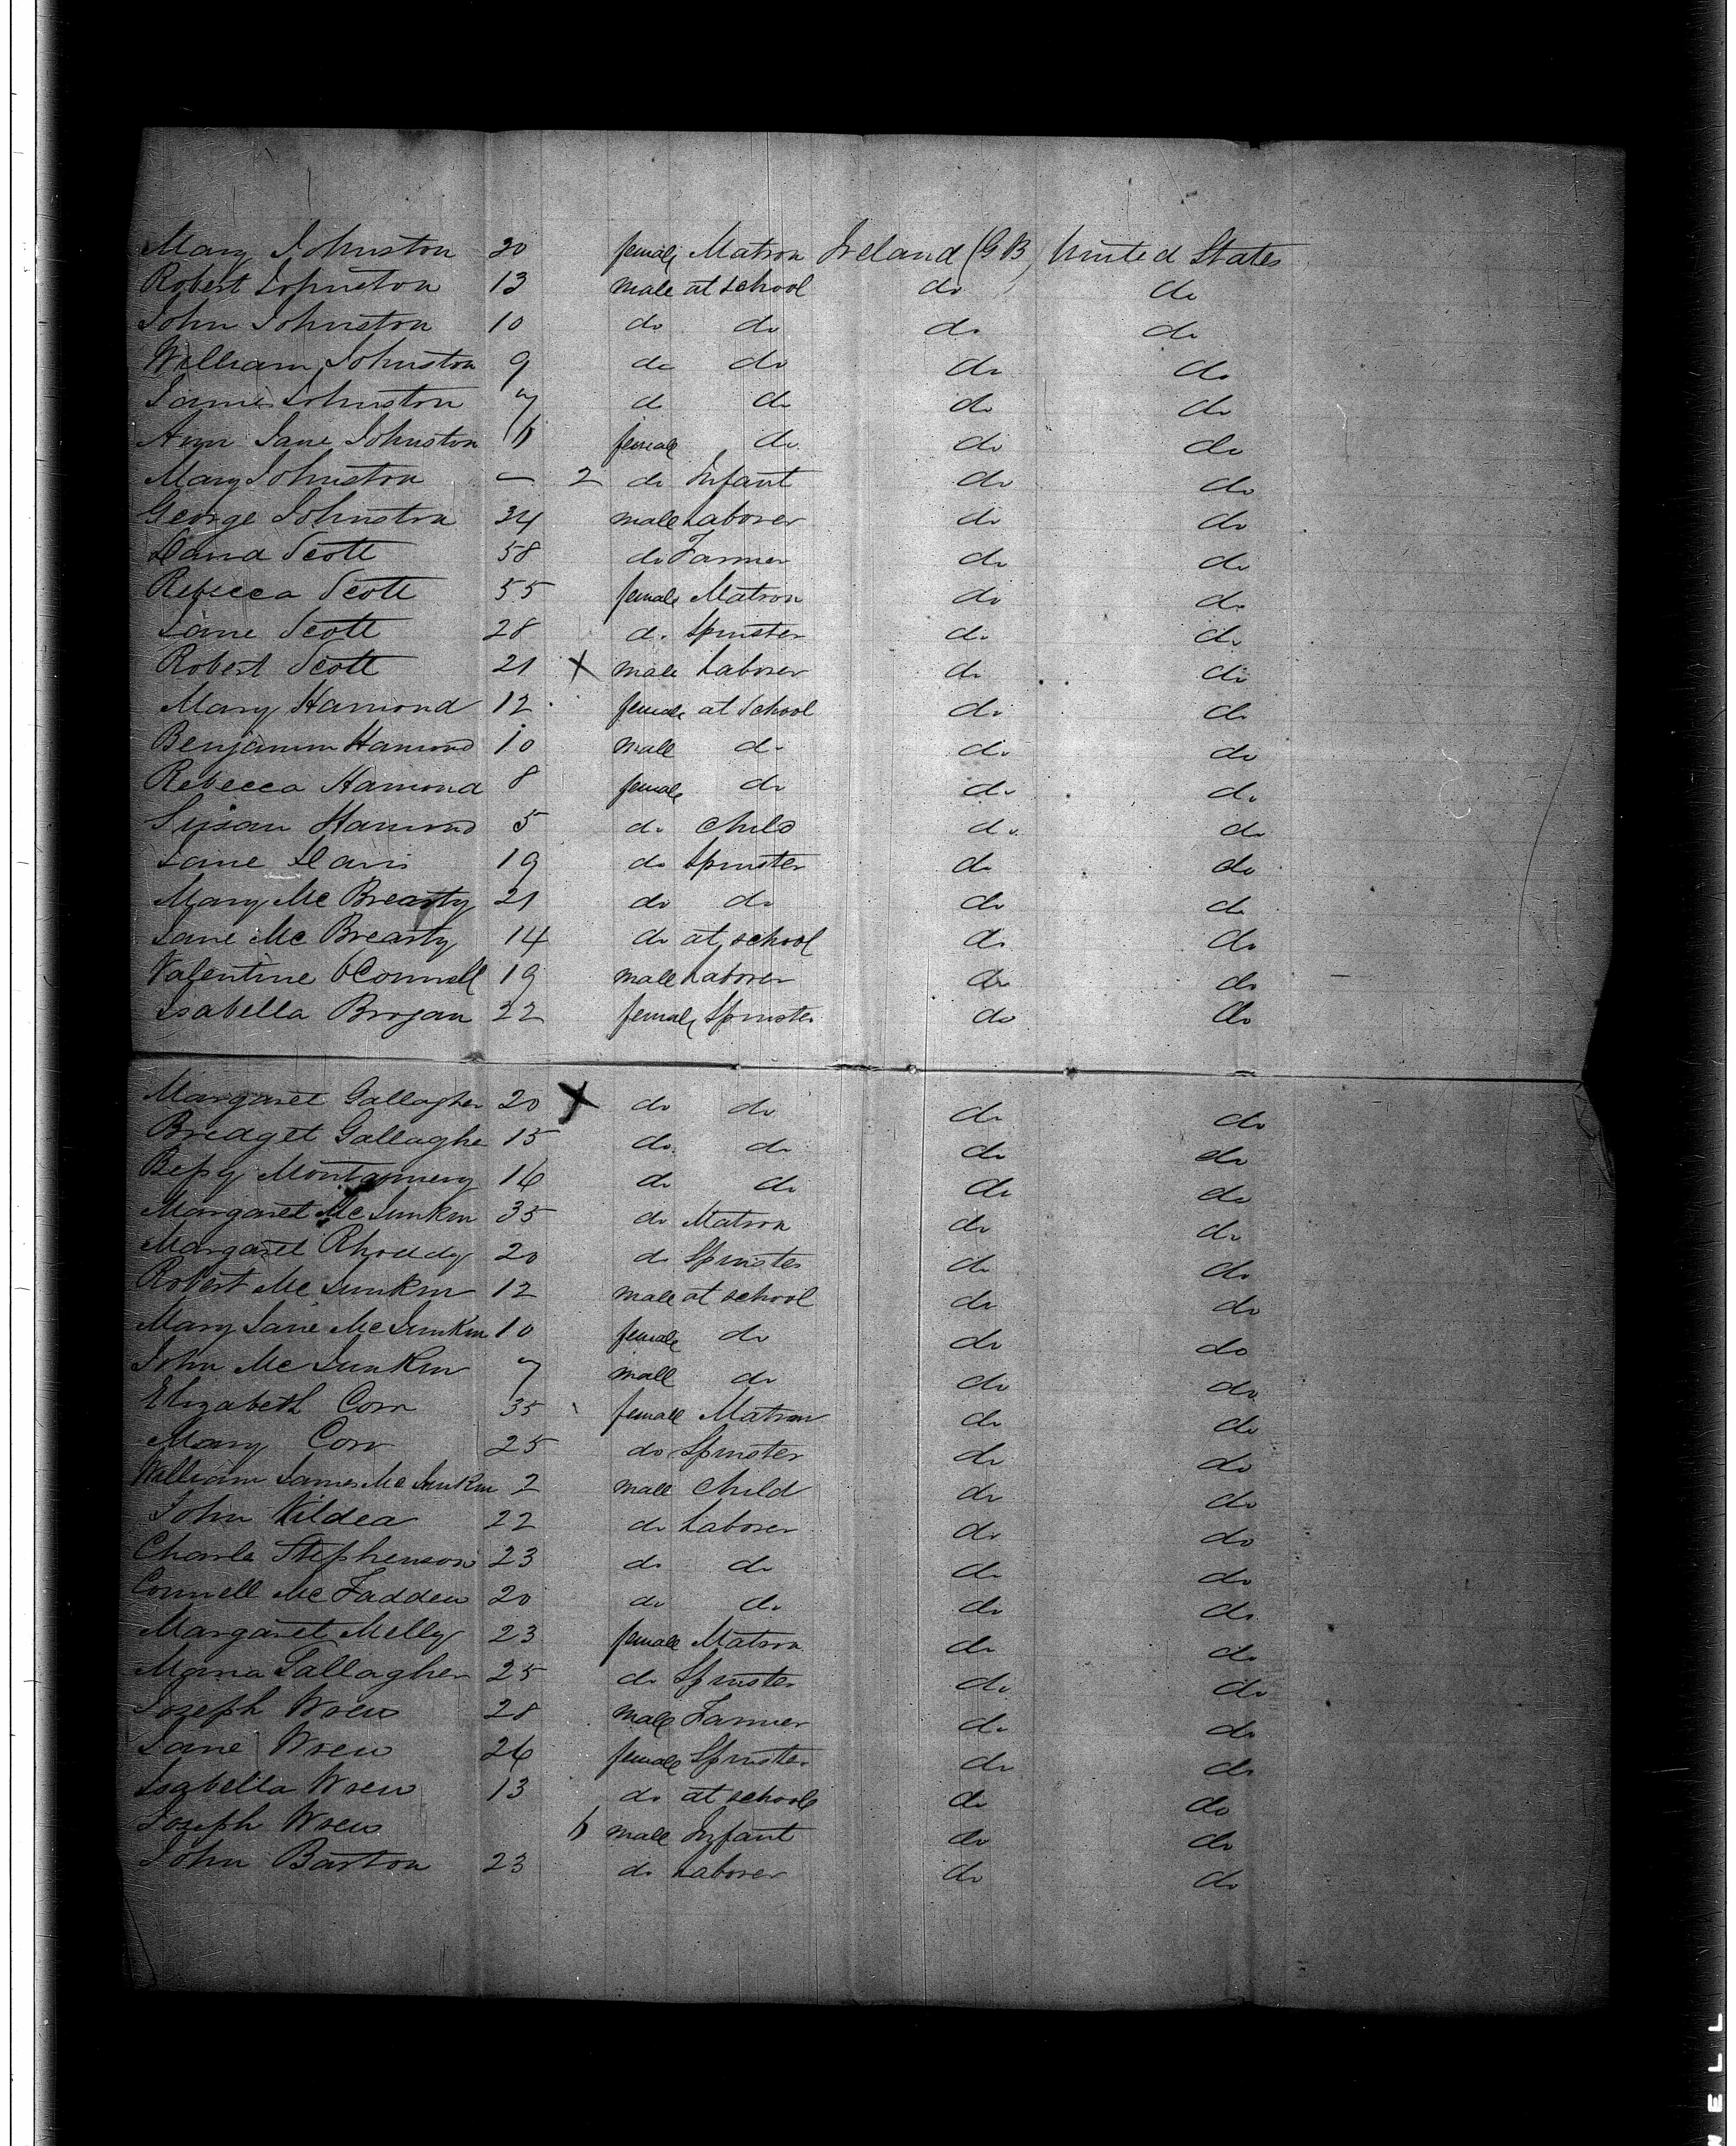 Mary Johnston 30 female Matron Ireland (GB) United States
Robert Johnston 13 male at school do do
John Johnston 10 do do do do
William Johnston 9 do do do do
James Johnston 7 do do do do
Ann Jane Johnston 6 female do do do
Mary Johnston — 2 do Infant do do
George Johnston 34 male Laborer do do
David Scott 58 do Farmer do do
Rebecca Scott 55 female Matron do do
Jane Scott 28 do Spinster do do
Robert Scott 21 X male Laborer do do
Mary Hamond 12 female at School do do
Benjamin Hamond 10 male do do do
Rebecca Hamond 8 female do do do
Susan Hamond 5 do child do do
Jane Davis 19 do Spinster do do
Mary Mc Brearty 21 do do do do
Jane Mc Brearty 14 do at school do do
Valentine OConnell 19 male Laborer do do
Isabella Brogan 22 female Spinster do do
Margaret Gallagher 20 X do do do do
Bredget Gallaghe 15 do do do do
Bessy Montgomery 16 do do do do
Margaret Mc Junkin 35 do Matron do do
Margaret Rhoddy 20 do Spinster do do
Robert Mc Junkin 12 male at school do do
Mary Jane Mc Junkin 10 female do do do
John Mc Junkin 7 male do do do
Elizabeth Corr 35 female Matron do do
Mary Corr 25 do Spinster do do
William James Mc Junkin 2 male child do do
John Kildea 22 do Laborer do do
Charls Stephenson 23 do do do do
Connell Mc Fadden 20 do do do do
Margaret Melly 23 female Matron do do
Maria Gallagher 25 do Spinster do do
Joseph Wren 28 male Farmer do do
Jane Wren 26 female Spinster do do
Isabella Wren 13 do at school do do
Joseph Wren 6 male Infant do do
John Barton 23 do Laborer do do
WELL